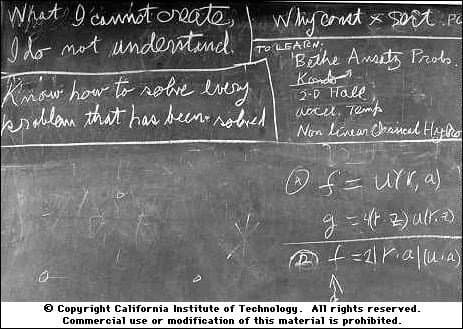 What I cannot create,
I do not understand.
Know how to solve every
problem that has been solved
Why const × sort . Po
TO LEARN:
Bethe Ansatz Probs.
Kondo
2-D Hall
accel. Temp
Non linear Classical Hydro
Ⓐ f = u(r, a)
g = 4(r·z) u(r, z)
Ⓑ f = 2|r·a|(u·a)
© Copyright California Institute of Technology. All rights reserved.
Commercial use or modification of this material is prohibited.